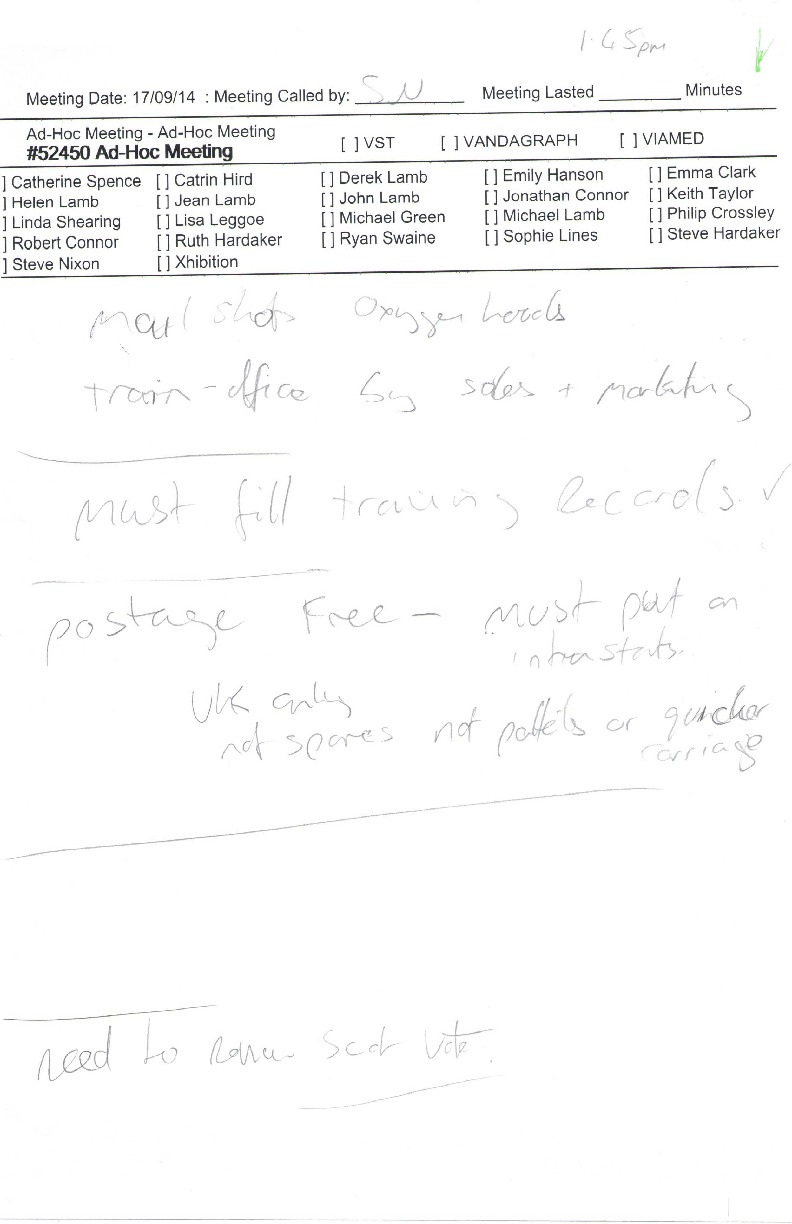 1.45pm
Meeting Date: 17/09/14 : Meeting Called by: SN Meeting Lasted ________ Minutes
Ad-Hoc Meeting - Ad-Hoc Meeting
#52450 Ad-Hoc Meeting [ ] VST [ ] VANDAGRAPH [ ] VIAMED
] Catherine Spence [ ] Catrin Hird [ ] Derek Lamb [ ] Emily Hanson [ ] Emma Clark
] Helen Lamb [ ] Jean Lamb [ ] John Lamb [ ] Jonathan Connor [ ] Keith Taylor
] Linda Shearing [ ] Lisa Leggoe [ ] Michael Green [ ] Michael Lamb [ ] Philip Crossley
] Robert Connor [ ] Ruth Hardaker [ ] Ryan Swaine [ ] Sophie Lines [ ] Steve Hardaker
] Steve Nixon [ ] Xhibition
Mail shots Oxygen hoods
train - office by sales + marketing
Must fill training Records. ✓
postage Free - must put on
intrastats.
UK only
not spares not pallets or quicker
carriage
need to